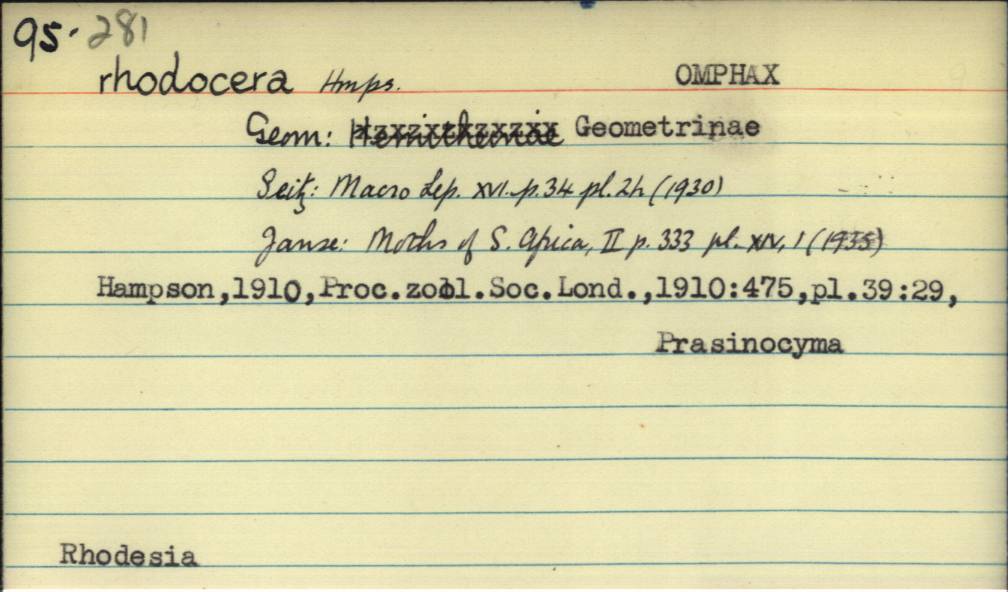 95. 281
rhodocera Hmps. OMPHAX
Geom: Geometrinae
Seitz: Macro Lep. XVI. p. 34 pl. 2h (1930)
Janse: Moths of S. Africa, II p. 333 pl. XIV, 1 (1935)
Hampson,1910,Proc.zool.Soc.Lond.,1910:475,pl.39:29,
Prasinocyma
Rhodesia